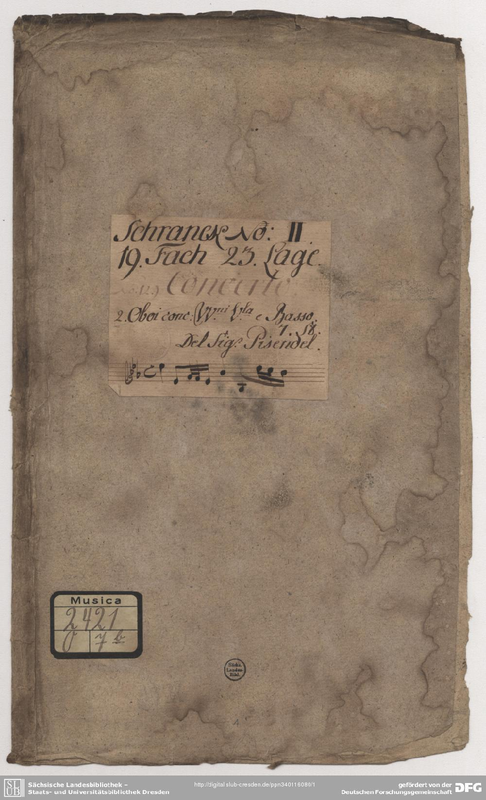 Schranck No: II.
19. Fach 23. Lage.
Concerto
2. Oboi conc. VVni Vla e Basso.
7. St.
Del Sigr. Pisendel.
Musica
2421
O 7b
Sächs.
Landes-
Bibl.
Sächsische Landesbibliothek -
Staats- und Universitätsbibliothek Dresden
http://digital.slub-dresden.de/ppn340116080/1
gefördert von der
Deutschen Forschungsgemeinschaft
DFG